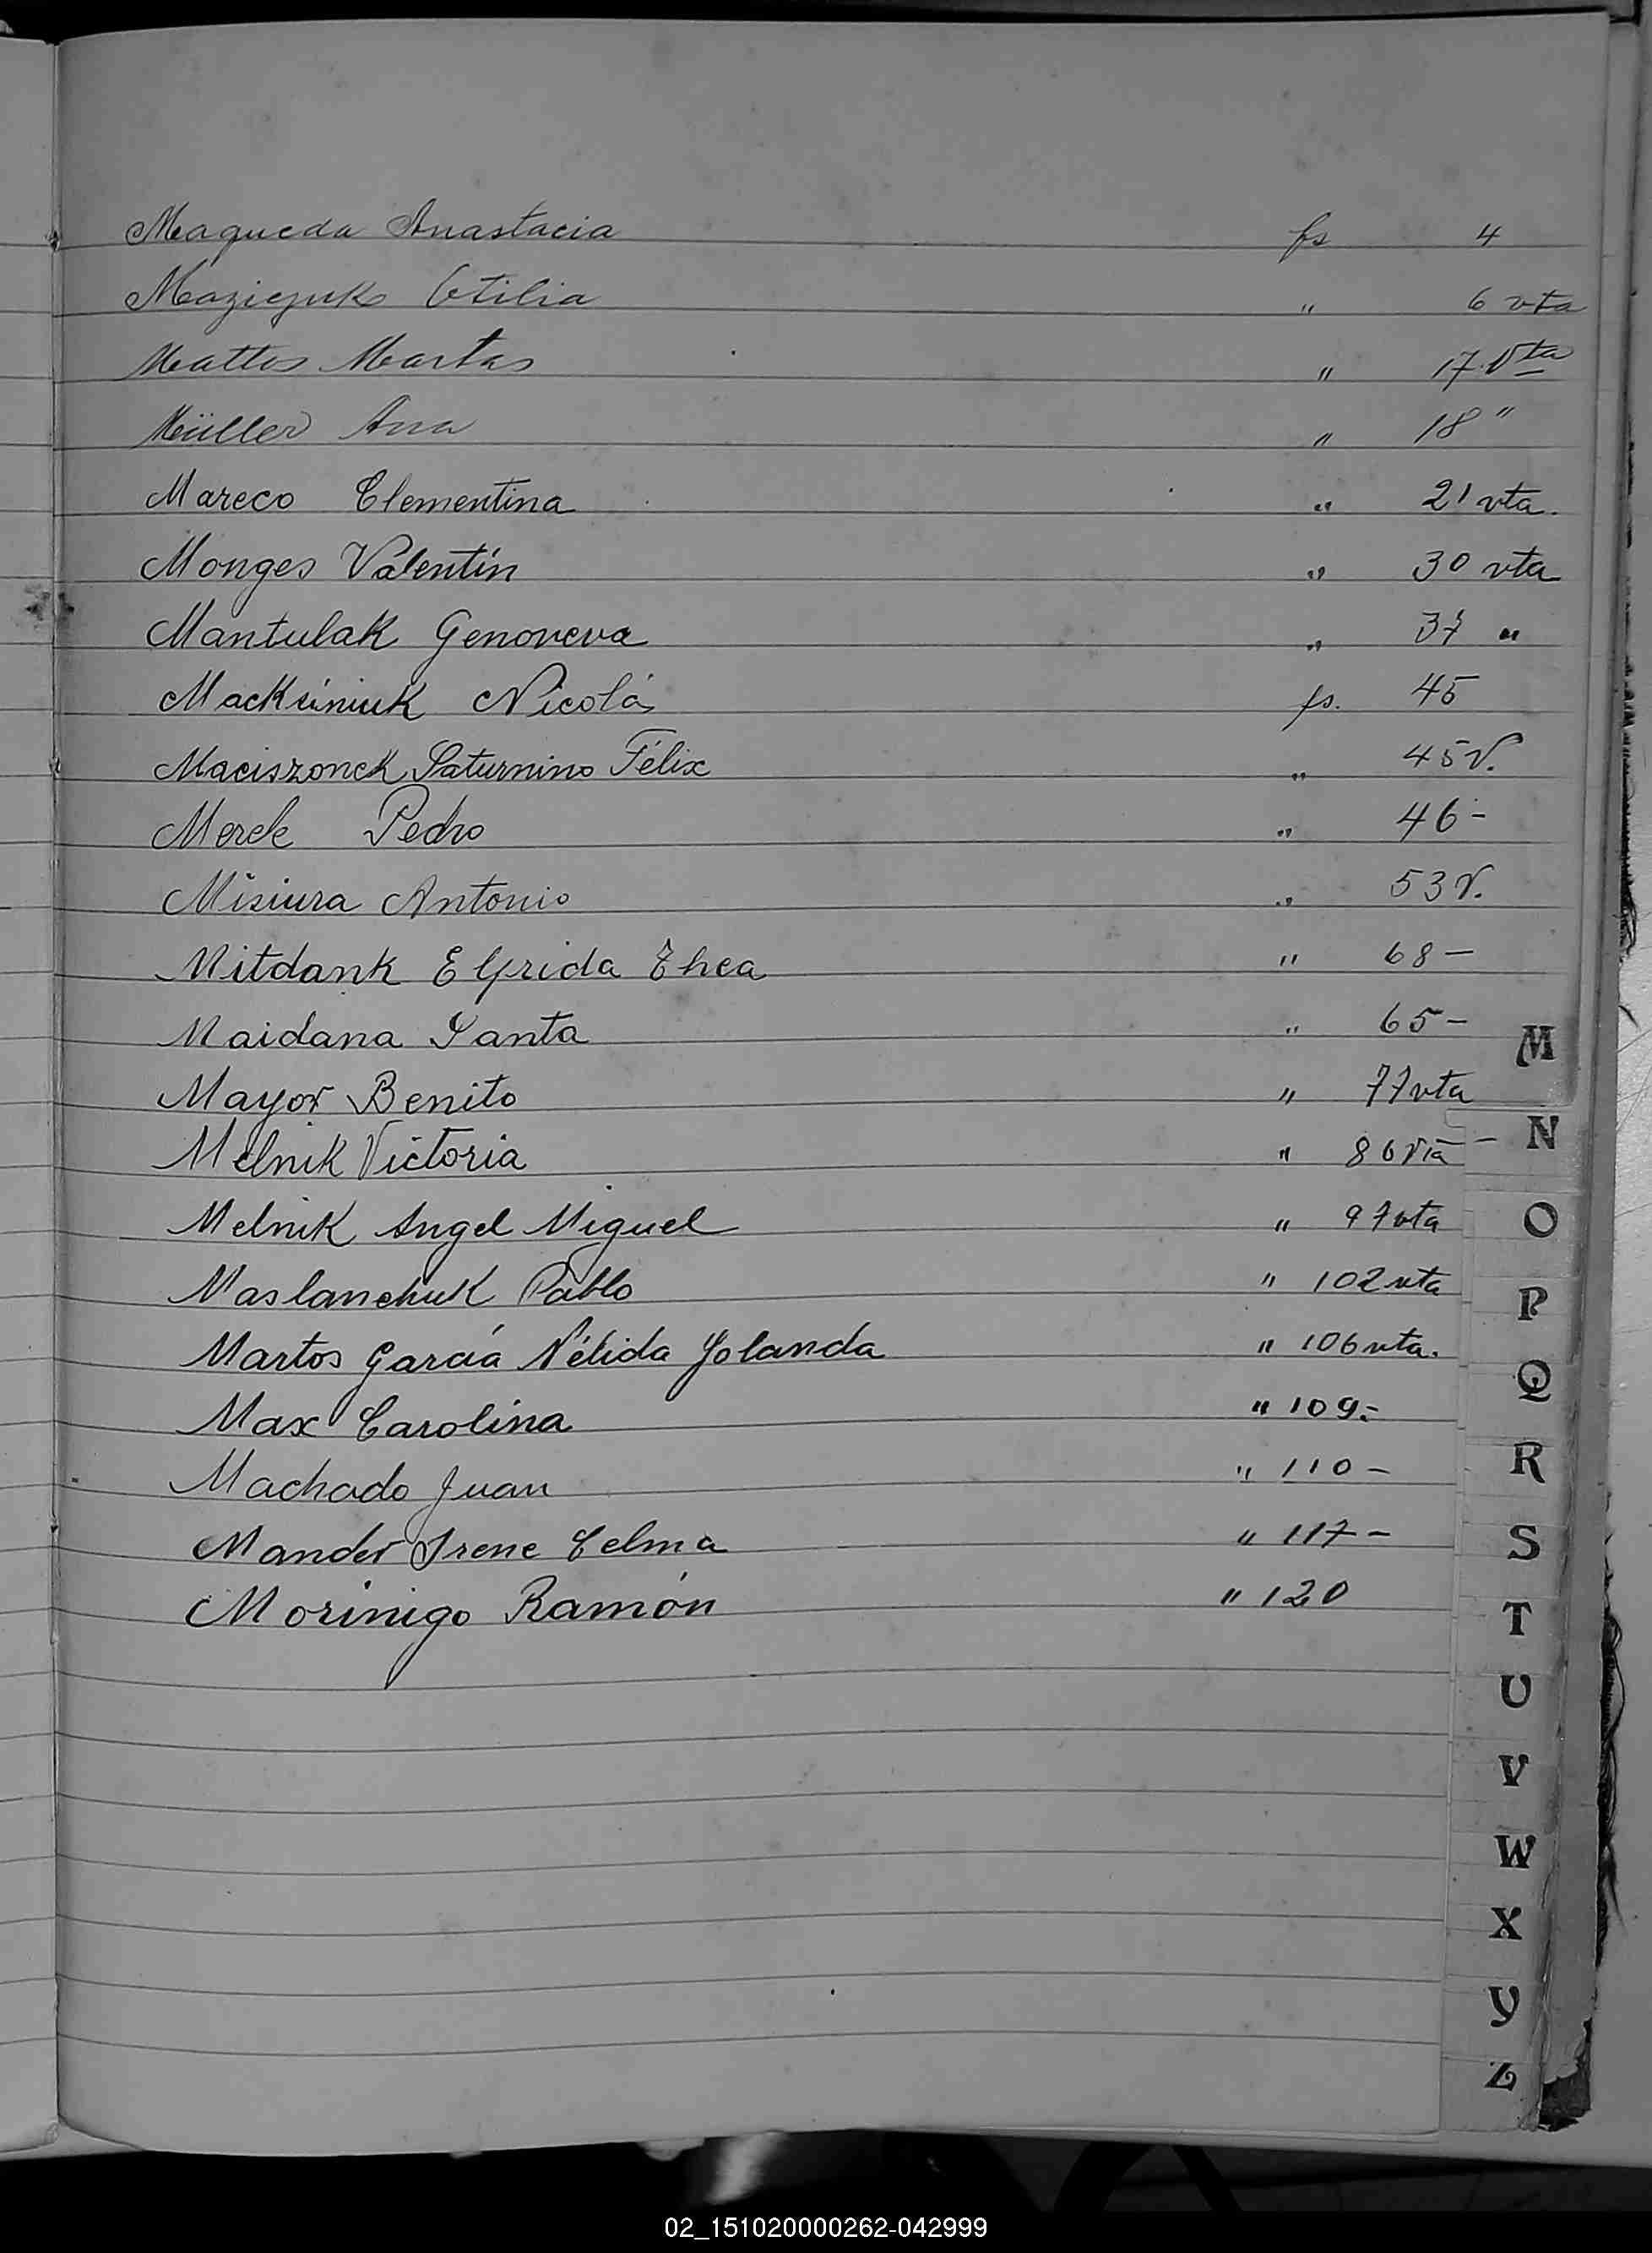 Maqueda Anastacia fs 4
Mazieyuk Otilia " 6 vta
Mattos Martas " 17 Vta
Müller Ana " 18 "
Mareco Clementina " 21 vta.
Monges Valentín " 30 vta
Mantulak Genoveva " 37 "
Macksiniuk Nicolás fs. 45
Maciszonek Saturnino Félix " 45 V.
Merele Pedro " 46-
Misiura Antonio " 53 V.
Mitdank Elfrida Thea " 68-
Maidana Santa " 65-
M
Mayor Benito " 77 vta
Melnik Victoria " 86 vta -
N
Melnik Angel Miguel " 97 vta
O
Maslanchuk Pablo " 102 vta
P
Martos García Nélida Yolanda " 106 vta.
Q
Max Carolina " 109.-
Machado Juan " 110-
R
Mander Irene Celma " 117-
S
Morinigo Ramón " 120
T
U
V
W
X
Y
Z
02_151020000262-042999